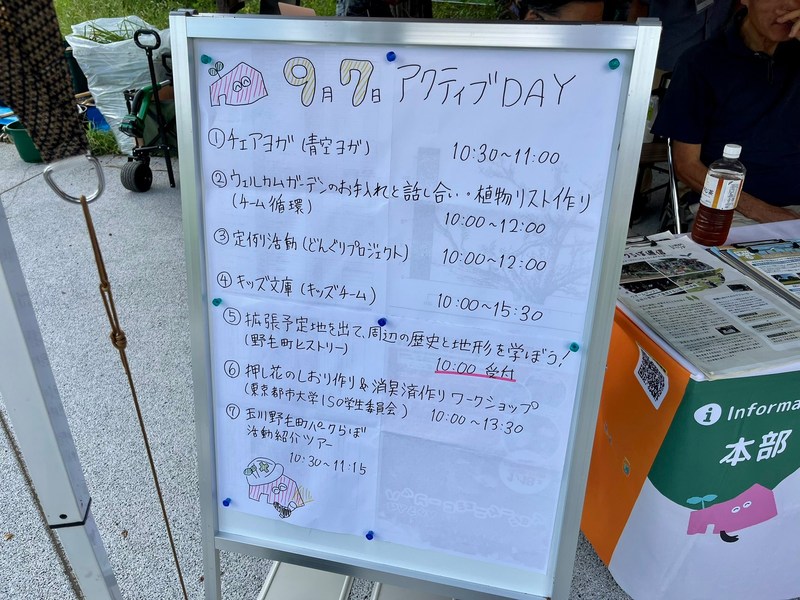 9月7日 アクティブDAY
①チェアヨガ(青空ヨガ) 10:30~11:00
②ウェルカムガーデンのお手入れと話し合い・植物リスト作り
(チーム循環) 10:00~12:00
③定例活動(どんぐりプロジェクト) 10:00~12:00
④キッズ文庫(キッズチーム) 10:00~15:30
⑤拡張予定地を出て、周辺の歴史と地形を学ぼう!
(野毛町ヒストリー) 10:00 受付
⑥押し花のしおり作り&消臭済作り ワークショップ
(東京都市大学ISO学生委員会) 10:00~13:30
⑦玉川野毛町パークらぼ
活動紹介ツアー
10:30~11:15
i Informa
本部